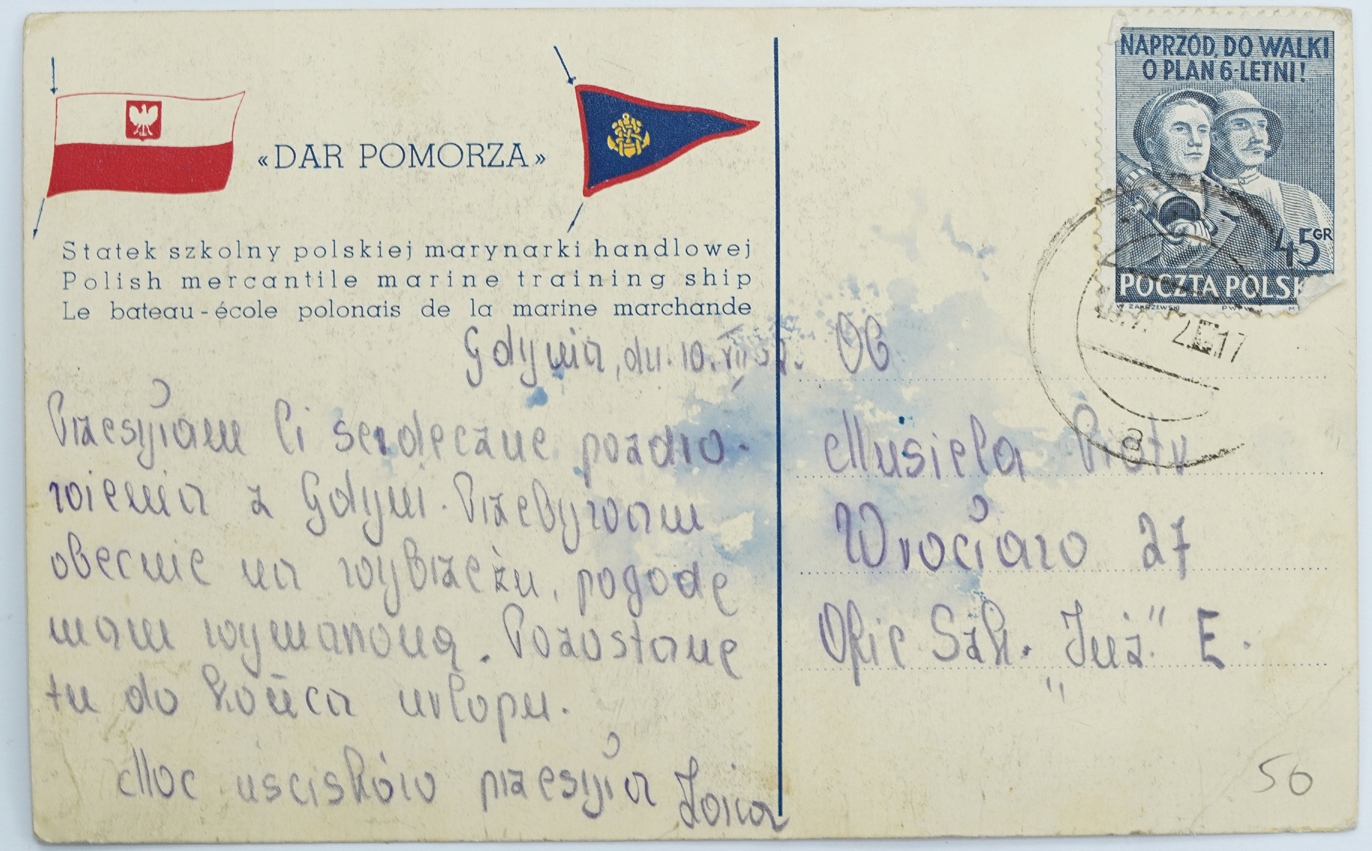 «DAR POMORZA»
Statek szkolny polskiej marynarki handlowej
Polish mercantile marine training ship
Le bateau-école polonais de la marine marchande
Gdynia, dn. 10.VII 52.
Przesyłam Ci serdeczne pozdro-
wienia z Gdyni. Przebywam
obecnie na wybrzeżu, pogodę
mam wymarzoną. Pozostanę
tu do końca urlopu.
Moc uścisków przesyła
NAPRZÓD, DO WALKI
O PLAN 6-LETNI!
45 GR
POCZTA POLSK
17
a
Musiela Piotr
Wrocław 27
Ofic Szk. "Inż." E.
50